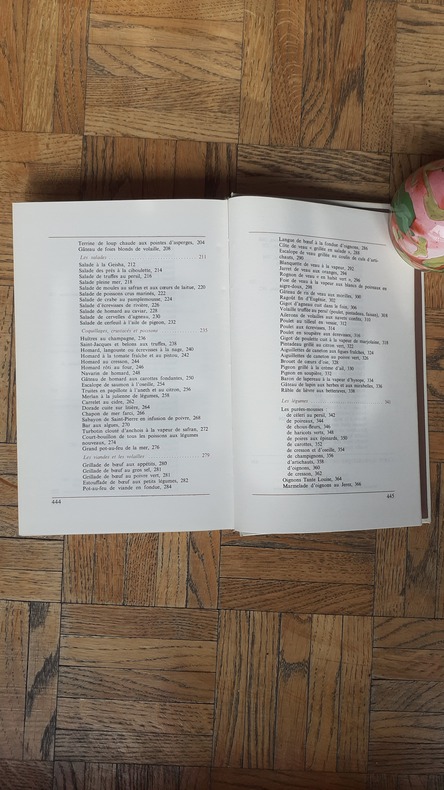 Terrine de loup chaude aux pointes d'asperges, 204
Gâteau de foies blonds de volaille, 208
Les salades 211
Salade à la Geisha, 212
Salade des prés à la ciboulette, 214
Salade de truffes au persil, 216
Salade pleine mer, 218
Salade de moules au safran et aux cœurs de laitue, 220
Salade de poissons crus marinés, 222
Salade de crabe au pamplemousse, 224
Salade d'écrevisses de rivière, 226
Salade de homard au caviar, 228
Salade de cervelles d'agneau, 230
Salade de cerfeuil à l'aile de pigeon, 232
Coquillages, crustacés et poissons 235
Huîtres au champagne, 236
Saint-Jacques et belons aux truffes, 238
Homard, langouste ou écrevisses à la nage, 240
Homard à la tomate fraîche et au pistou, 242
Homard au cresson, 244
Homard rôti au four, 246
Navarin de homard, 248
Gâteau de homard aux carottes fondantes, 250
Escalope de saumon à l'oseille, 254
Truites en papillote à l'aneth et au citron, 256
Merlan à la julienne de légumes, 258
Carrelet au cidre, 262
Dorade cuite sur litière, 264
Chapon de mer farci, 266
Sabayon de Saint-Pierre en infusion de poivre, 268
Bar aux algues, 270
Turbotin clouté d'anchois à la vapeur de safran, 272
Court-bouillon de tous les poissons aux légumes
nouveaux, 274
Grand pot-au-feu de la mer, 276
Les viandes et les volailles 279
Grillade de bœuf aux appétits, 280
Grillade de bœuf au gros sel, 281
Grillade de bœuf au poivre vert, 281
Estouffade de bœuf aux petits légumes, 282
Pot-au-feu de viande en fondue, 284
444
Langue de bœuf à la fondue d'oignons, 286
Côte de veau « grillée en salade », 288
Escalope de veau grillée au coulis de culs d'arti-
chauts, 290
Blanquette de veau à la vapeur, 292
Jarret de veau aux oranges, 294
Rognon de veau « en habit vert », 296
Foie de veau à la vapeur aux blancs de poireaux en
aigre-doux, 298
Gâteau de ris de veau aux morilles, 300
Ragoût fin d'Eugénie, 302
Gigot d'agneau cuit dans le foin, 306
Volaille truffée au persil (poulet, pintadeau, faisan), 308
Ailerons de volailles aux navets confits, 310
Poulet au tilleul en vessie, 312
Poulet aux écrevisses, 314
Poulet en soupière aux écrevisses, 316
Gigot de poulette cuit à la vapeur de marjolaine, 318
Pintadeau grillé au citron vert, 322
Aiguillettes de caneton aux figues fraîches, 324
Aiguillettes de caneton au poivre vert, 326
Brouet de cœurs d'oie, 328
Pigeon grillé à la crème d'ail, 330
Pigeon en soupière, 332
Baron de lapereau à la vapeur d'hysope, 334
Gâteau de lapin aux herbes et aux mirabelles, 336
Râble de lièvre aux betteraves, 338
Les légumes 341
Les purées-mousses
de céleri au persil, 342
de poireaux, 344
de choux-fleurs, 346
de haricots verts, 348
de poires aux épinards, 350
de carottes, 352
de cresson et d'oseille, 354
de champignons, 356
d'artichauts, 358
d'oignons, 360
de cresson, 362
Oignons Tante Louise, 364
Marmelade d'oignons au Jerez, 366
445